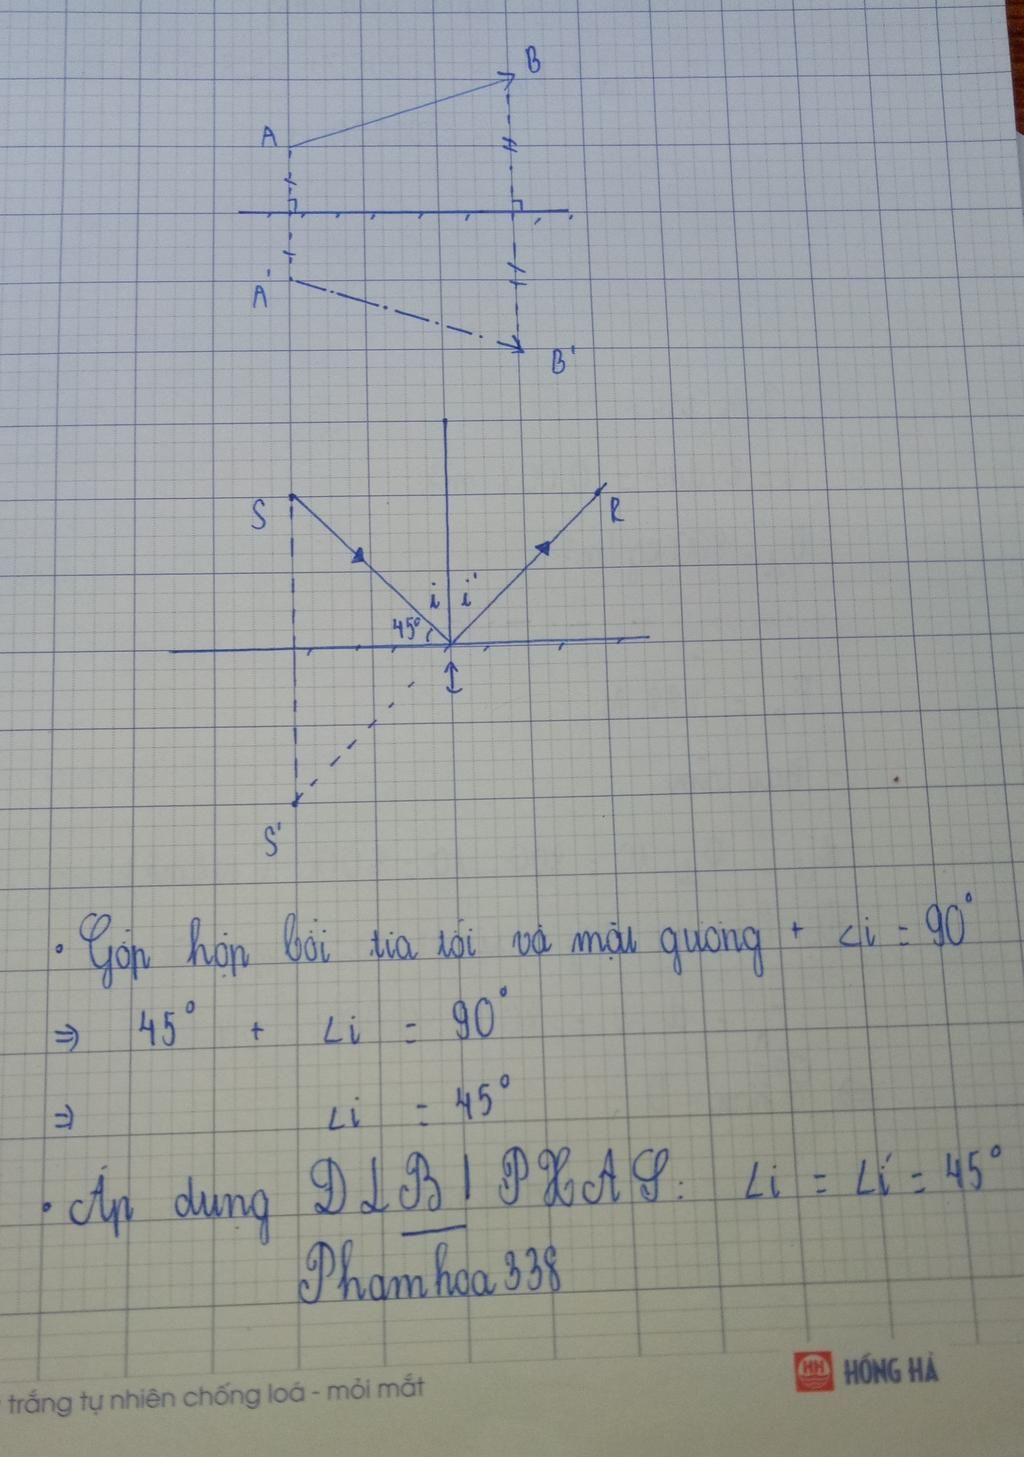 B
A
A'
B'
S
R
i i'
45°
I
S'
• Góp hợp bởi tia tới và mặt gương + ∠i = 90°
⇒ 45° + ∠i = 90°
⇒ ∠i = 45°
• Áp dụng ĐLB| PXAS: ∠i = ∠i' = 45°
Phamhoa338
trắng tự nhiên chống loá - mỏi mắt
HH HỒNG HÀ